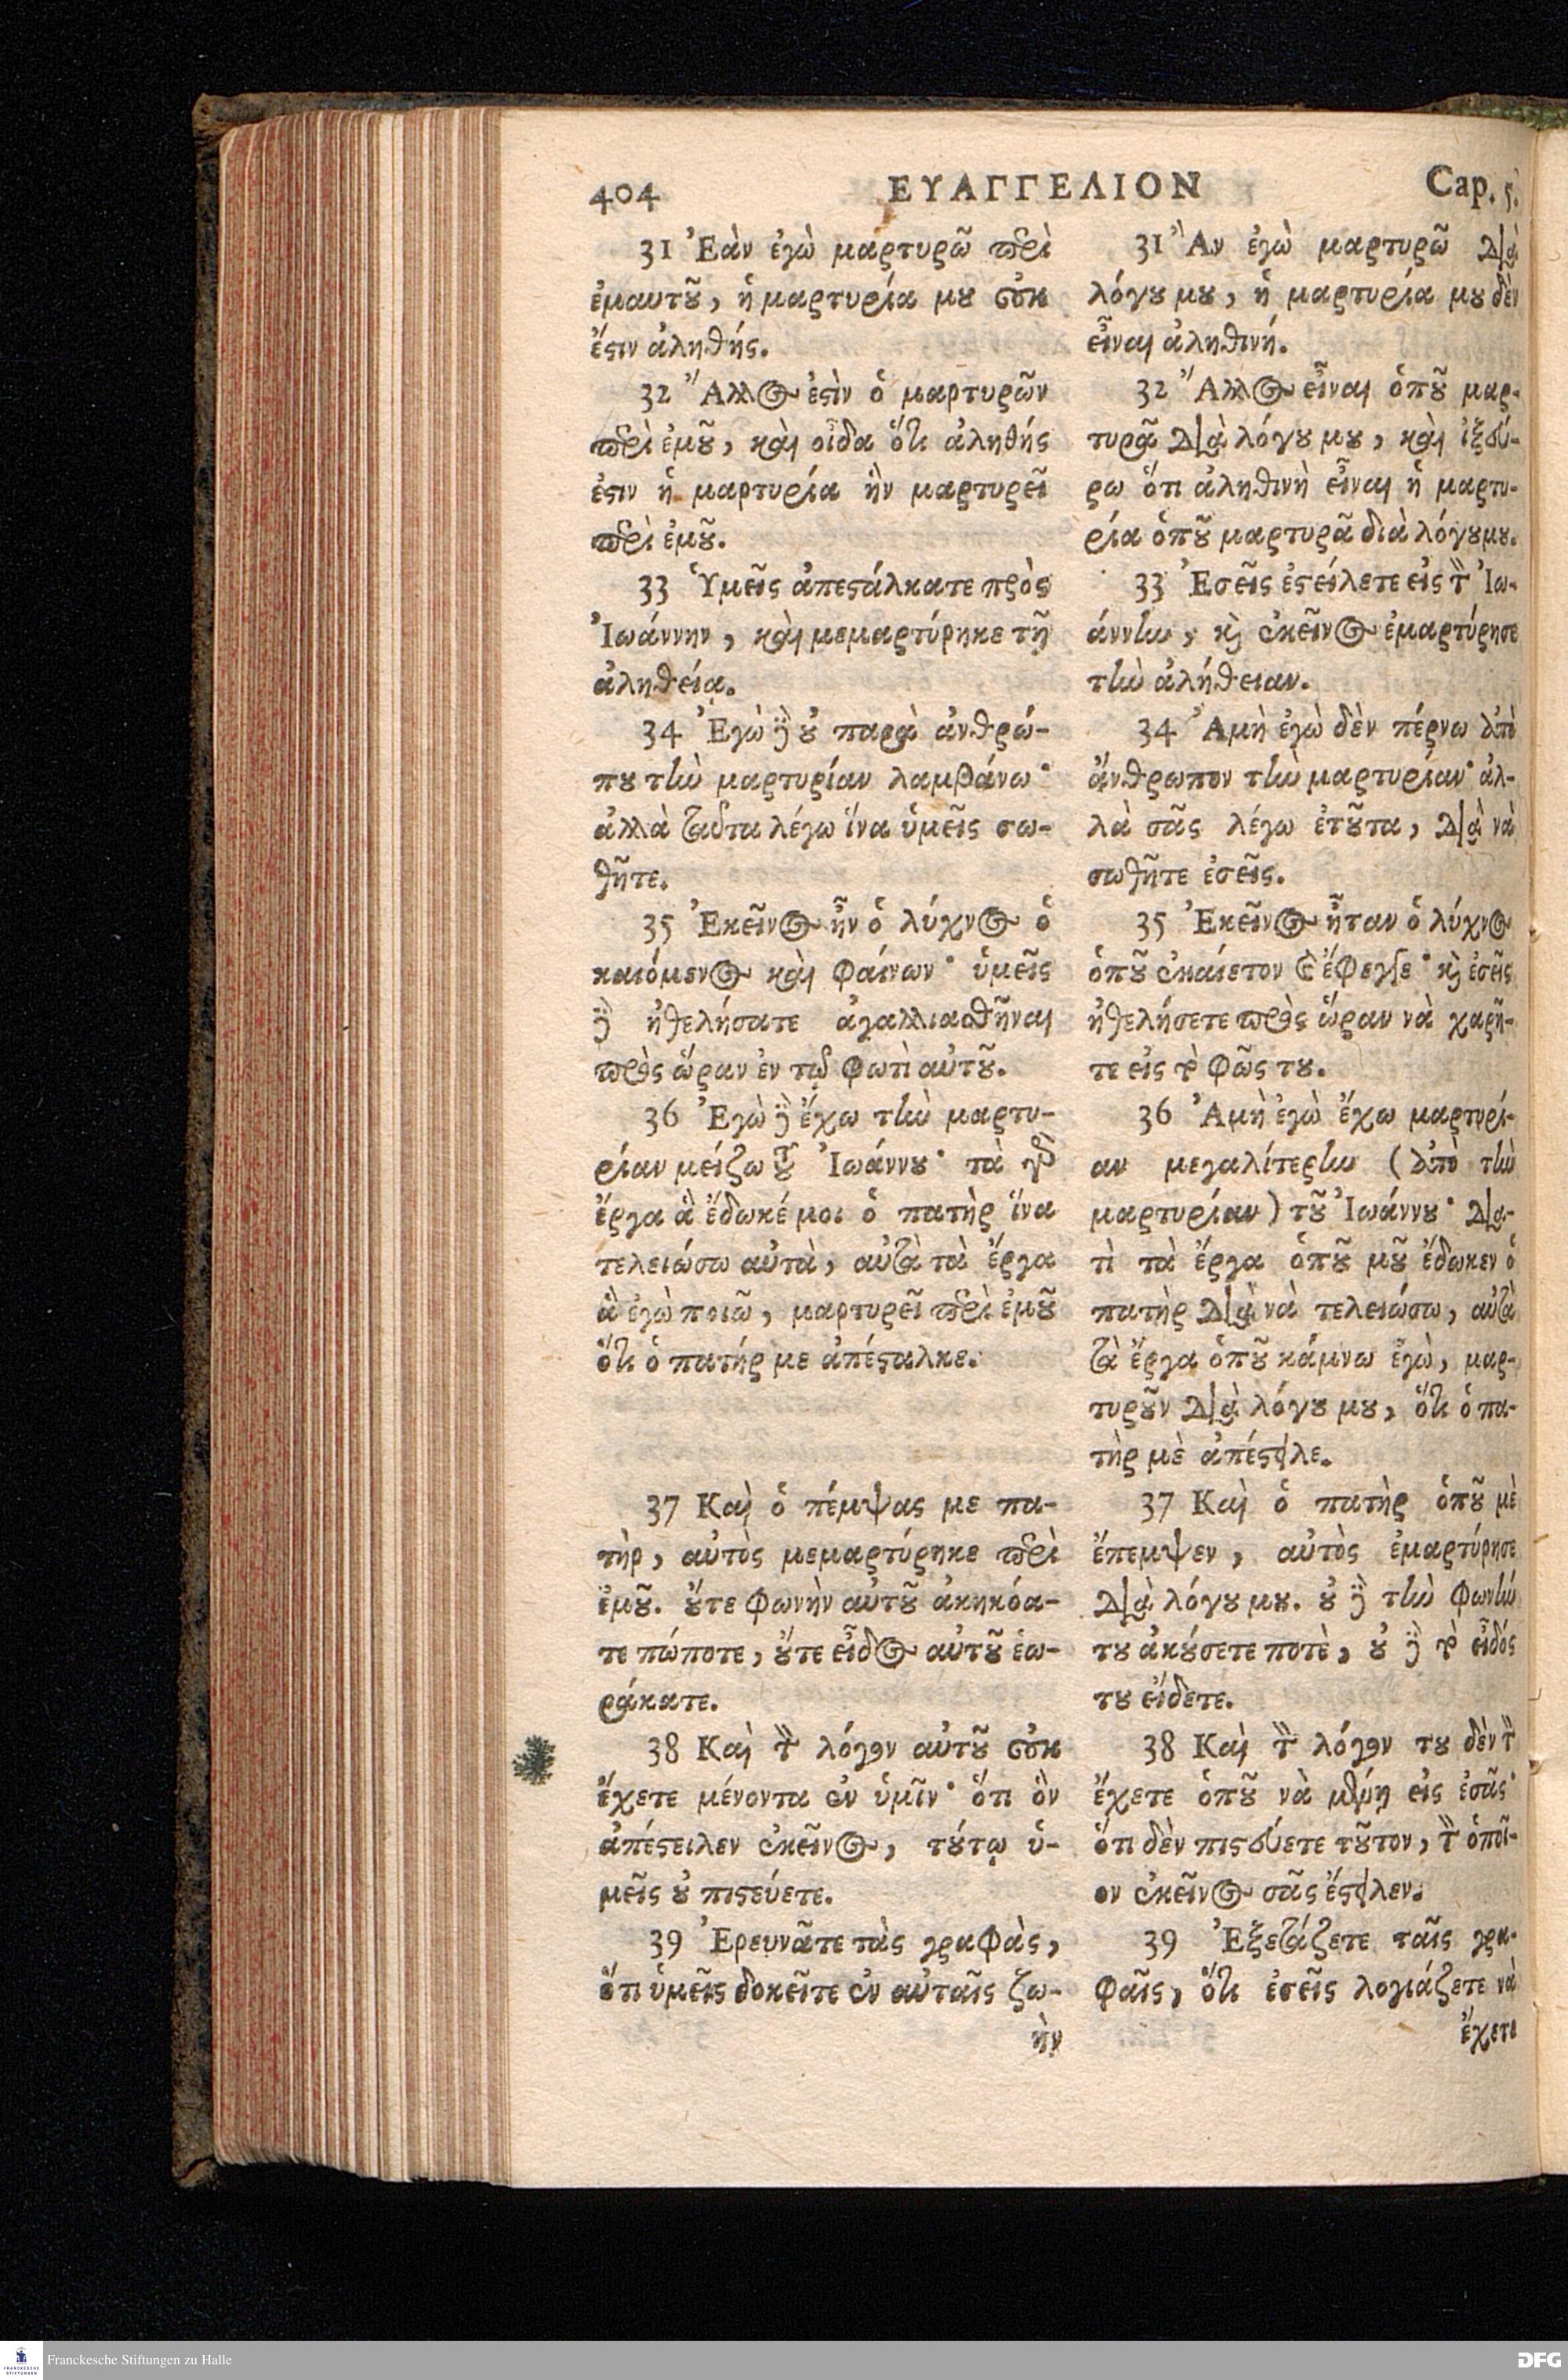 404 ΕΥΑΓΓΕΛΙΟΝ Cap. 5.
31 Ἐὰν ἐγὼ μαρτυρῶ περὶ
ἐμαυτȣ͂, ἡ μαρτυρία μȣ οὐκ
ἔϛιν ἀληθής.
32 Ἄλλος ἐϛὶν ὁ μαρτυρῶν
περὶ ἐμȣ͂, καὶ οἶδα ὅτι ἀληθής
ἐϛιν ἡ μαρτυρία ἣν μαρτυρεῖ
περὶ ἐμȣ͂.
33 Ὑμεῖς ἀπεϛάλκατε πρὸς
Ἰωάννην, καὶ μεμαρτύρηκε τῇ
ἀληθείᾳ.
34 Ἐγὼ δὲ ȣ̓ παρὰ ἀνθρώ-
πȣ τὴν μαρτυρίαν λαμβάνω·
ἀλλὰ ταῦτα λέγω ἵνα ὑμεῖς σω-
θῆτε.
35 Ἐκεῖνος ἦν ὁ λύχνος ὁ
καιόμενος καὶ φαίνων· ὑμεῖς
δὲ ἠθελήσατε ἀγαλλιασθῆναι
πρὸς ὥραν ἐν τῷ φωτὶ αὐτȣ͂.
36 Ἐγὼ δὲ ἔχω τὴν μαρτυ-
ρίαν μείζω τȣ͂ Ἰωάννȣ· τὰ γὰρ
ἔργα ἃ ἔδωκέ μοι ὁ πατὴρ ἵνα
τελειώσω αὐτὰ, αὐτὰ τὰ ἔργα
ἃ ἐγὼ ποιῶ, μαρτυρεῖ περὶ ἐμȣ͂
ὅτι ὁ πατήρ με ἀπέϛαλκε.
37 Καὶ ὁ πέμψας με πα-
τὴρ, αὐτὸς μεμαρτύρηκε περὶ
ἐμȣ͂. ȣ̓́τε φωνὴν αὐτȣ͂ ἀκηκόα-
τε πώποτε, ȣ̓́τε εἶδος αὐτȣ͂ ἑω-
ράκατε.
38 Καὶ τὸν λόγον αὐτȣ͂ οὐκ
ἔχετε μένοντα ἐν ὑμῖν· ὅτι ὃν
ἀπέϛειλεν ἐκεῖνος, τȣ́τῳ ὑ-
μεῖς ȣ̓ πιϛεύετε.
39 Ἐρευνᾶτε τὰς γραφὰς,
ὅτι ὑμεῖς δοκεῖτε ἐν αὐταῖς ζω-
ὴν
31 Ἂν ἐγὼ μαρτυρῶ διὰ
λόγȣ μȣ, ἡ μαρτυρία μȣ δὲν
εἶναι ἀληθινή.
32 Ἄλλος εἶναι ὁπȣ͂ μαρ-
τυρᾷ διὰ λόγȣ μȣ, καὶ ἰξεύ-
ρω ὅτι ἀληθινὴ εἶναι ἡ μαρτυ-
ρία ὁπȣ͂ μαρτυρᾶ διὰ λόγȣ μȣ.
33 Ἐσεῖς ἐϛείλετε εἰς τὸν Ἰω-
άννην, καὶ ἐκεῖνος ἐμαρτύρησε
τὴν ἀλήθειαν.
34 Ἀμὴ ἐγὼ δὲν πέρνω ἀπὸ
ἄνθρωπον τὴν μαρτυρίαν· ἀλ-
λὰ σᾶς λέγω ἐτȣ͂τα, διὰ νὰ
σωθῆτε ἐσεῖς.
35 Ἐκεῖνος ἦταν ὁ λύχνος
ὁπȣ͂ ἐκαίετον καὶ ἔφεγγε· καὶ ἐσεῖς
ἠθελήσετε πρὸς ὥραν νὰ χαρῆ-
τε εἰς τὸ φῶς τȣ.
36 Ἀμὴ ἐγὼ ἔχω μαρτυρί-
αν μεγαλίτερην (ἀπὸ τὴν
μαρτυρίαν) τȣ͂ Ἰωάννȣ· δια-
τὶ τὰ ἔργα ὁπȣ͂ μȣ͂ ἔδωκεν ὁ
πατὴρ διὰ νὰ τελειώσω, αὐτὰ
τὰ ἔργα ὁπȣ͂ κάμνω ἐγὼ, μαρ-
τυρȣ͂ν διὰ λόγȣ μȣ, ὅτι ὁ πα-
τὴρ μὲ ἀπέϛειλε.
37 Καὶ ὁ πατὴρ ὁπȣ͂ μὲ
ἔπεμψεν, αὐτὸς ἐμαρτύρησε
διὰ λόγȣ μȣ. ȣ̓ δὲ τὴν φωνὴν
τȣ ἀκȣ́σετε ποτὲ, ȣ̓ δὲ τὸ εἶδός
τȣ εἴδετε.
38 Καὶ τὸν λόγον τȣ δὲν τὸν
ἔχετε ὁπȣ͂ νὰ μένῃ εἰς ἐσᾶς·
ὅτι δὲν πιϛεύετε τȣ͂τον, τὸν ὁποῖ-
ον ἐκεῖνος σᾶς ἔϛειλεν.
39 Ἐξετάζετε ταῖς γρα-
φαῖς, ὅτι ἐσεῖς λογιάζετε νὰ
ἔχετε
Franckesche Stiftungen zu Halle
FRANCKESCHE STIFTUNGEN
DFG